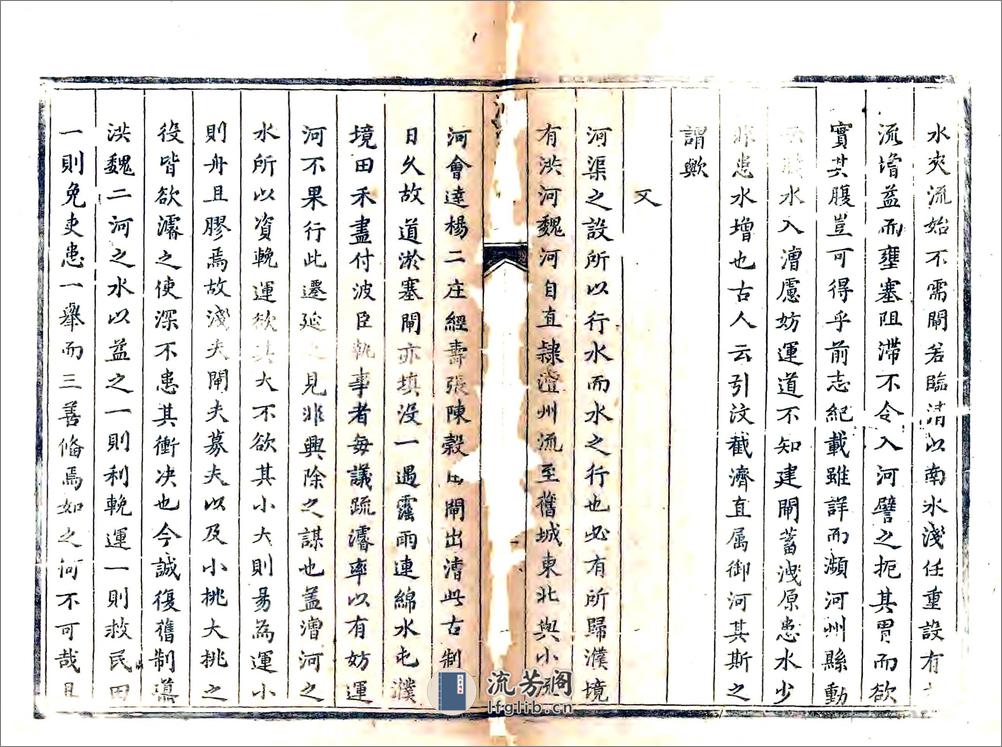 水夾流始不需閘若臨清以南水淺任重設有
流增益而壅塞阻滯不令入河譬之扼其胃而欲
實其腹豈可得乎前志紀載雖詳而瀕河州縣動
水入漕慮妨運道不知建閘蓄洩原患水少
非患水增也古人云引汶截濟直属御河其斯之
謂歟
又
河渠之設所以行水而水之行也必有所歸濮境
有洪河魏河自直隸澶州流至舊城東北與小流
河會達楊二庄經壽張陳穀出閘出漕此古制
日久故道淤塞閘亦填没一遇霪雨連綿水屯濮
境田禾盡付波臣執事者每議疏濬率以有妨運
河不果行此遷延之見非興除之謀也盖漕河之
水所以資輓運欲其大不欲其小大則易為運小
則舟且膠焉故淺夫閘夫募夫以及小挑大挑之
役皆欲濬之使深不患其衝决也今誠復舊制導
洪魏二河之水以益之一則利輓運一則救民田
一則免吏患一舉而三善脩焉如之何不可哉且
流芳阁
lfglib.cn